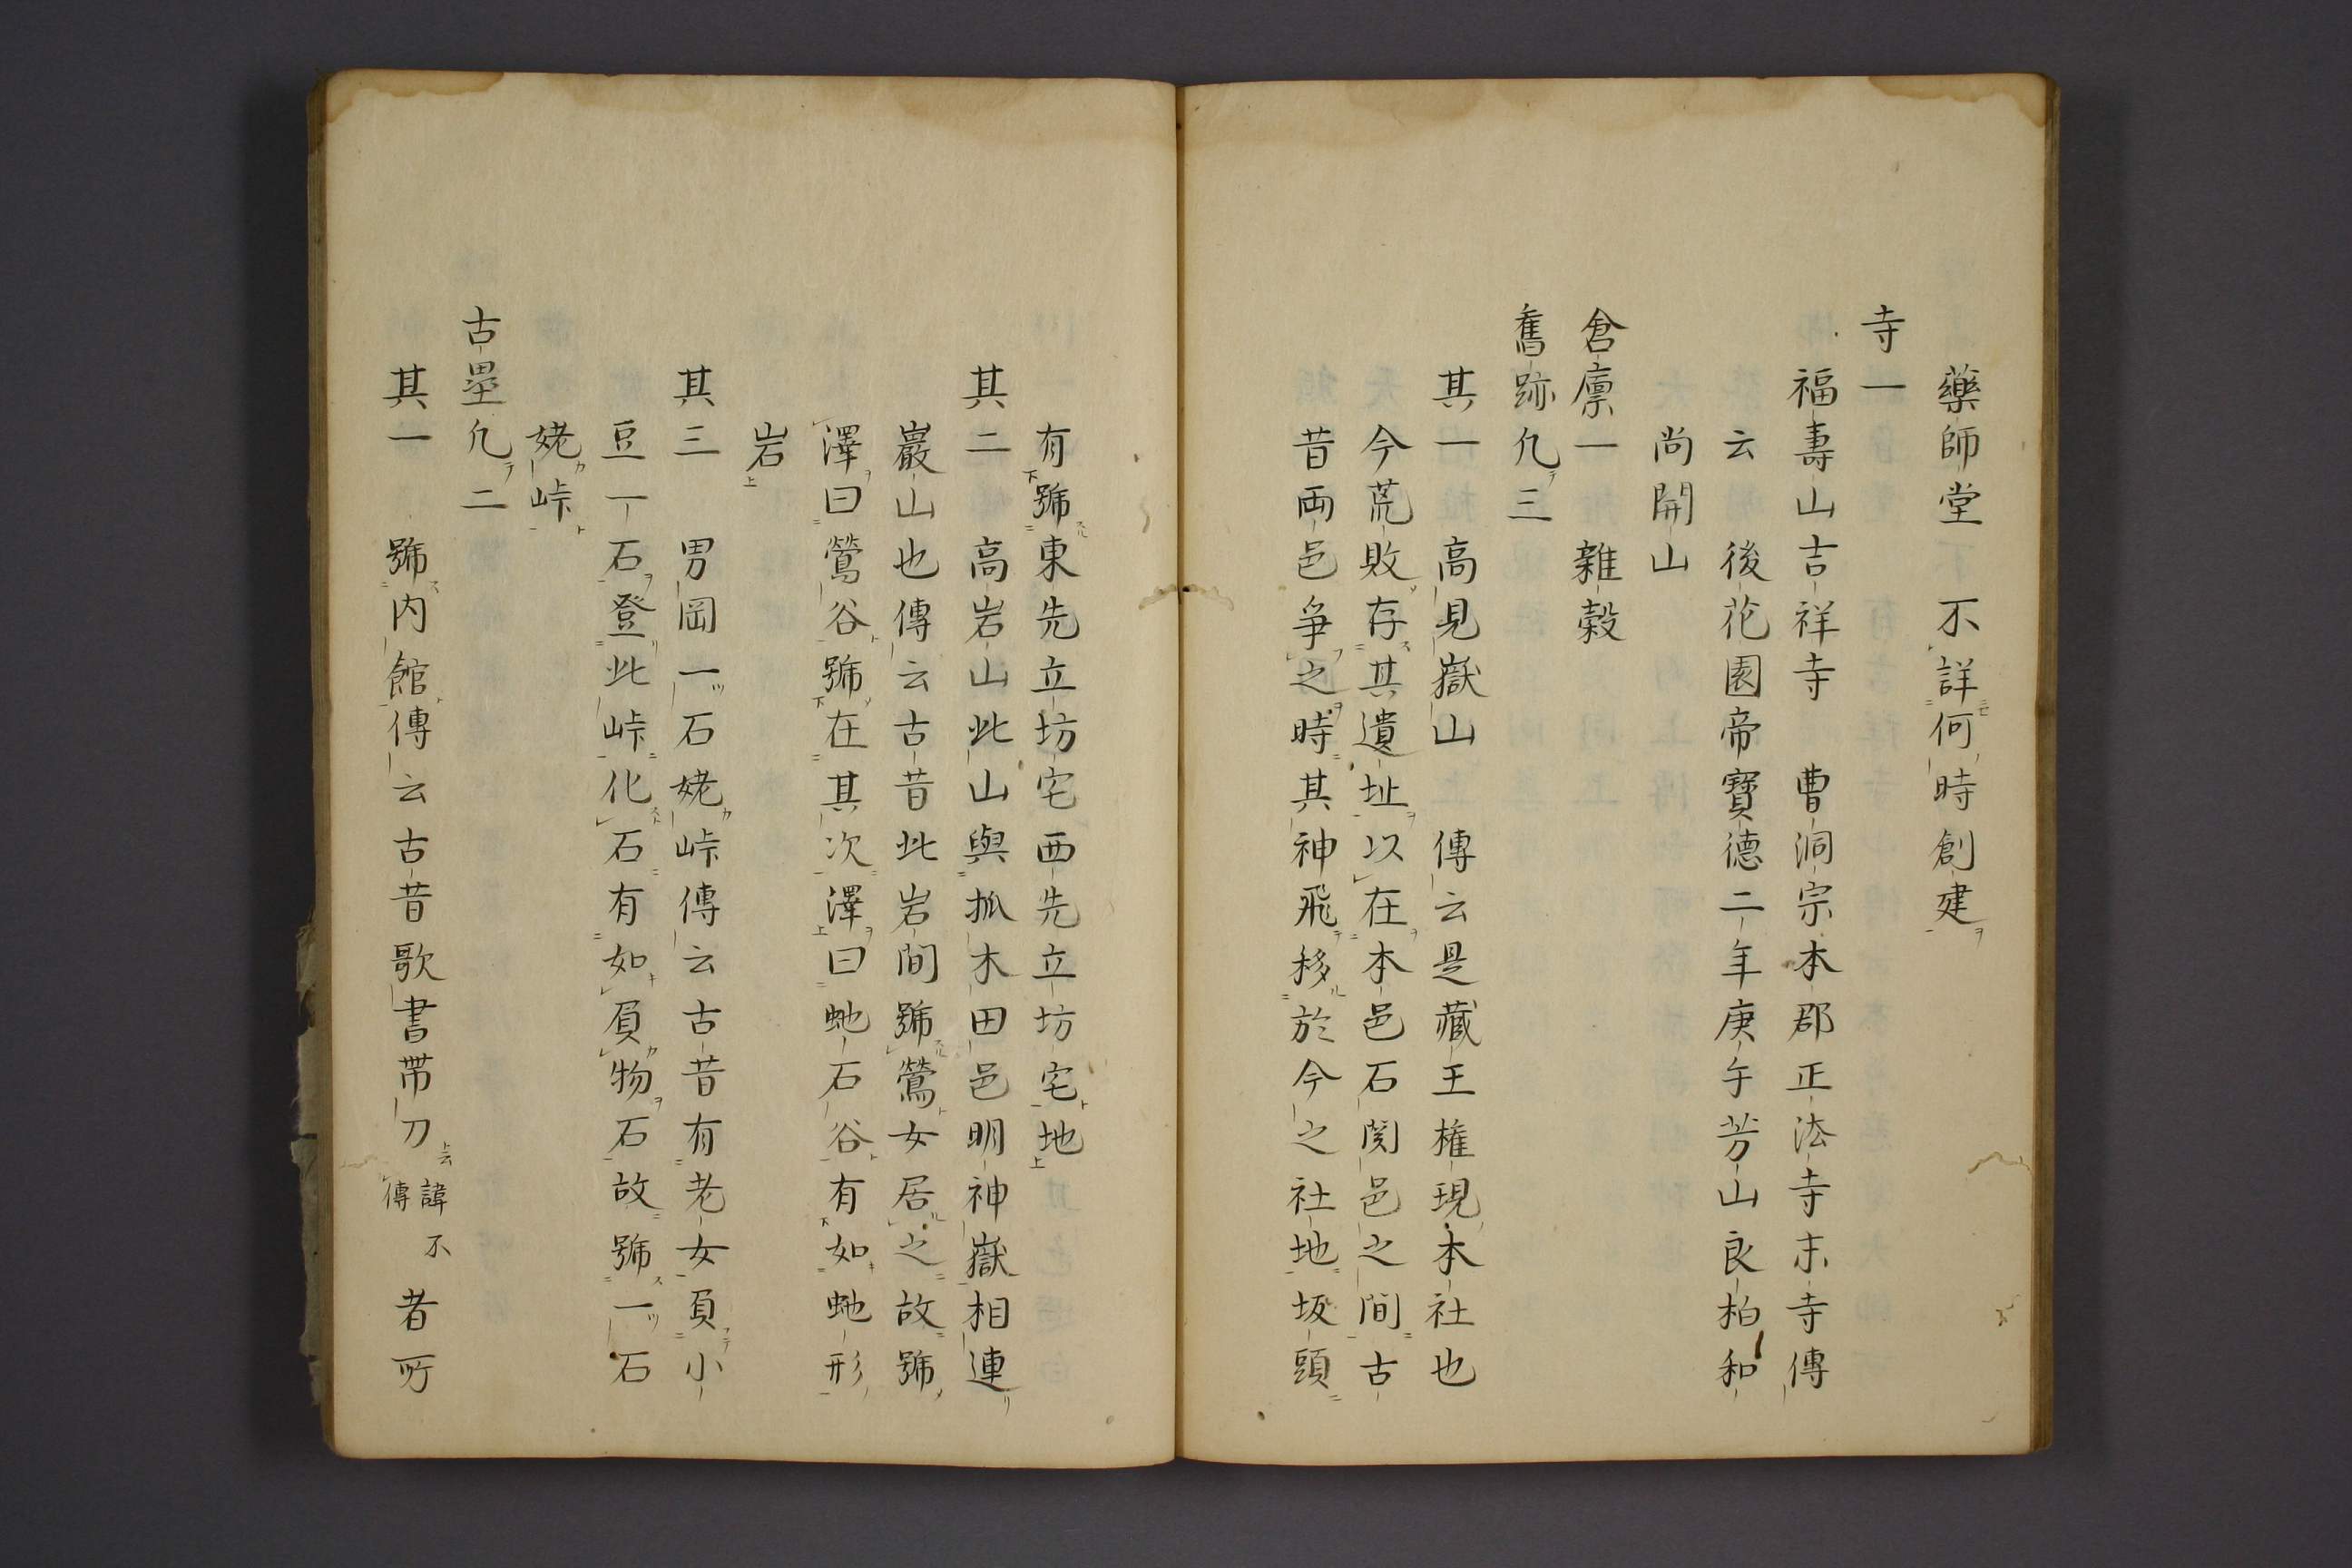 藥師堂 不詳何時創建
寺一
福壽山吉祥寺 曹洞宗本郡正法寺末寺傳
云 後花園帝寶德二年庚午芳山良柏和
尚開山
倉廩一 雜穀
舊跡凡三
其一 高見嶽山 傳云是藏王権現本社也
今荒敗存其遺址以在本邑石関邑之間古
昔両邑爭之時其神飛移於今之社地坂頭
有號東先立坊宅西先立坊宅地
其二 高岩山此山與狐木田邑明神嶽相連
巖山也傳云古昔此岩間號鶯女居之故號
澤曰鶯谷號在其次澤曰虵石谷有如虵形
岩
其三 男岡一石姥峠傳云古昔有老女負小
豆一石登此峠化石有如負物石故號一石
姥峠
古壘凡二
其一 號内館傳云古昔歌書帯刀諱不傳者所